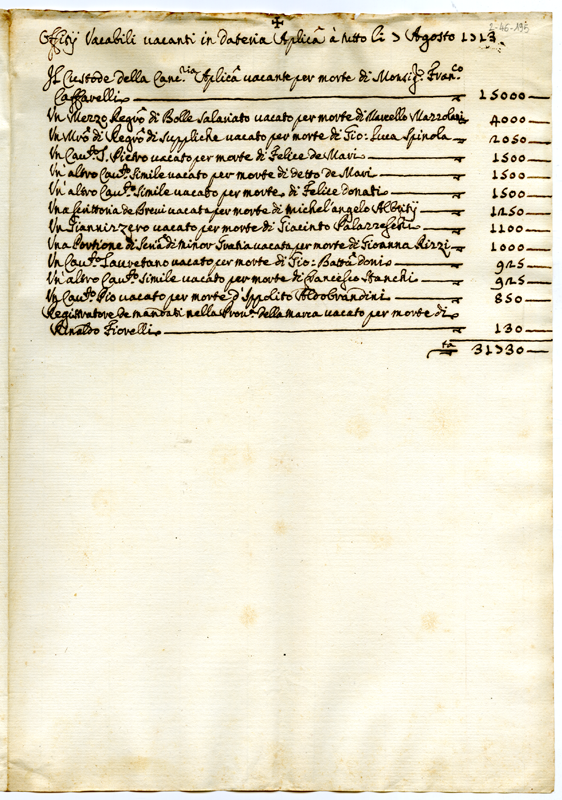 ✠
Offitij Vacabili vacanti in Dataria Aplicâ à tutto li 7 Agosto 1713
2-46-195
Il Custode della Canc.ria Aplicâ vacante per morte di Monsig.r Fran.co
Caffarelli 15000
Un Mezzo Regro di Bolle Salariato vacato per morte di Marcello Mazzolani 4000
Un Mro di Regro di suppliche vacato per morte di Gio: Luca Spinola 2050
Un Cau.to S. Pietro vacato per morte di Felice de Mari 1500
Un' altro Cau.to Simile vacato per morte di detto de Mari 1500
Un' altro Cau.to Simile vacato per morte di Felice Donati 1500
Una Scrittoria de Brevi vacata per morte di Michel'angelo Albritij 1250
Un Giannizzero vacato per morte di Giacinto 1100
Una Portione di minor Gratia vacata per morte di Gioanna Rizzi 1000
Un Cau.to Lauretano vacato per morte di Gio: Batta Doni 925
Un' altro Cau.to Simile vacato per morte di Francesco Stanchi 925
Un Cau.to Pio vacato per morte d'Ippolito Aldobrandini 850
Registratore de mandati nella Prou.a della marca vacato per morte di
Rinaldo Fiorelli 130
31730